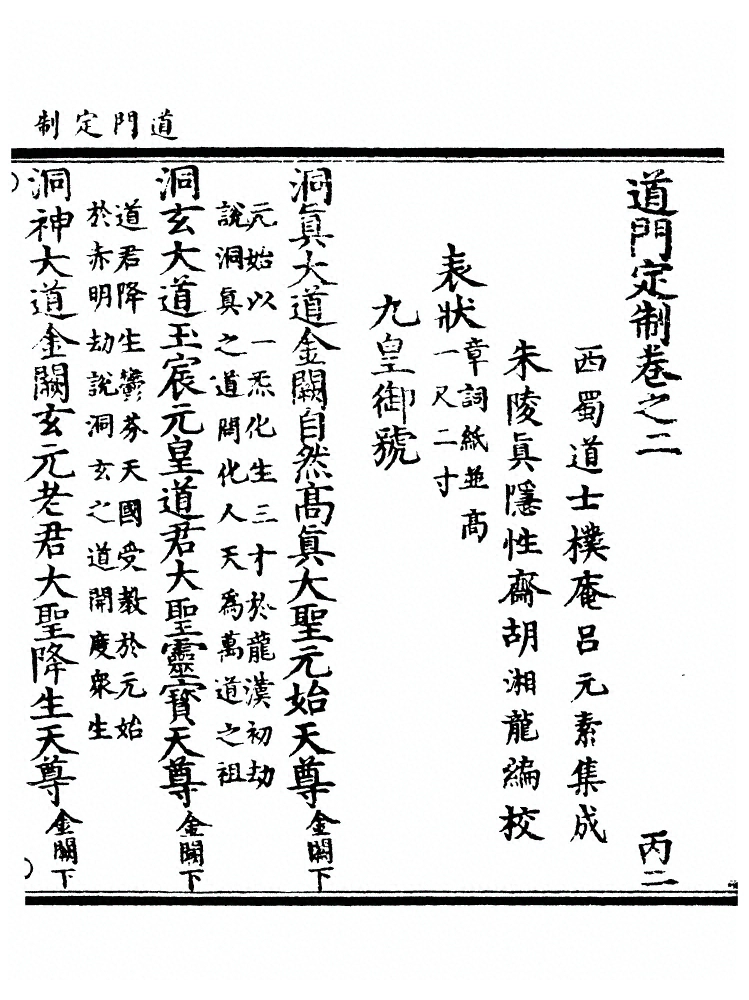 道門定制
道門定制卷之二
丙二
西蜀道士樸庵呂元素集成
朱陵眞隱性齋胡湘龍編校
表狀
章詞紙並高
一尺二寸
九皇御號
洞眞大道金闕自然高眞大聖元始天尊金闕下
元始以一炁化生三才於龍漢初劫
說洞眞之道開化人天爲萬道之祖
洞玄大道玉宸元皇道君大聖靈寳天尊金闕下
道君降生鬱芬天國受敎於元始
於赤明劫說洞玄之道開度衆生
洞神大道金闕玄元老君大聖降生天尊金闕下